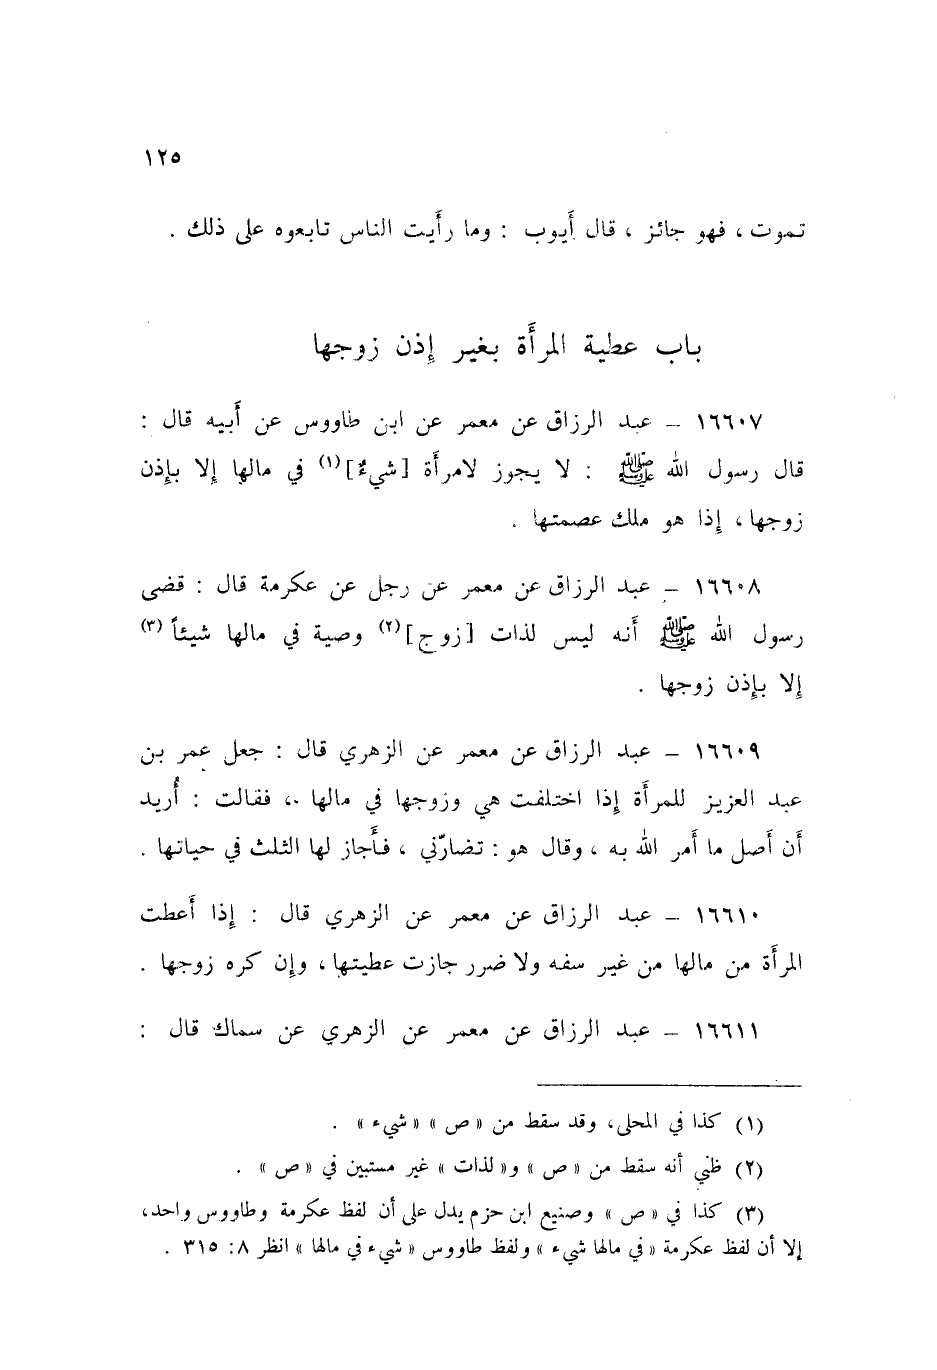 ١٢٥
تموت ، فهو جائز ، قال أيوب : وما رأيت الناس تابعوه على ذلك .
باب عطية المرأة بغير إذن زوجها
١٦٦٠٧ – عبد الرزاق عن معمر عن ابن طاووس عن أبيه قال :
قال رسول الله ﷺ : لا يجوز لامرأة [شيءٌ](١) في مالها إلا بإذن
زوجها ، إذا هو ملك عصمتها .
١٦٦٠٨ – عبد الرزاق عن معمر عن رجل عن عكرمة قال : قضى
رسول الله ﷺ أنه ليس لذات [زوج](٢) وصية في مالها شيئاً (٣)
إلا بإذن زوجها .
١٦٦٠٩ – عبد الرزاق عن معمر عن الزهري قال : جعل عمر بن
عبد العزيز للمرأة إذا اختلفت هي وزوجها في مالها ، فقالت : أُريد
أن أصل ما أمر الله به ، وقال هو : تضارّني ، فأجاز لها الثلث في حياتها .
١٦٦١٠ – عبد الرزاق عن معمر عن الزهري قال : إذا أعطت
المرأة من مالها من غير سفه ولا ضرر جازت عطيتها ، وإن كره زوجها .
١٦٦١١ – عبد الرزاق عن معمر عن الزهري عن سماك قال :
(١) كذا في المحلى، وقد سقط من « ص » « شيء » .
(٢) ظني أنه سقط من « ص » و« لذات » غير مستبين في « ص » .
(٣) كذا في « ص » وصنيع ابن حزم يدل على أن لفظ عكرمة وطاووس واحد،
إلا أن لفظ عكرمة « في مالها شيء » ولفظ طاووس « شيء في مالها » انظر ٨: ٣١٥ .